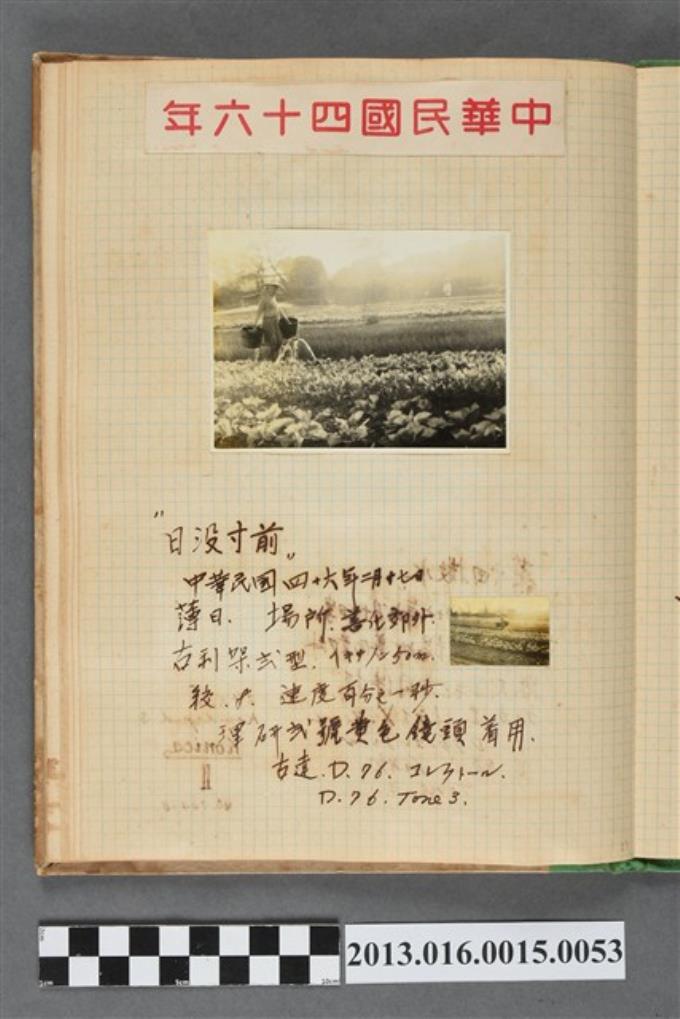 中華民國四十六年
"日没寸前"
中華民國四十六年二月十七日
薄日. 場所. 善化郊外.
吉利架弍型.
絞.8. 速度百分之一秒.
理研弍號黄色鏡頭着用.
古達.D.76. コレクトール.
D.76. Tone 3.
Konica
II
2013.016.0015.0053